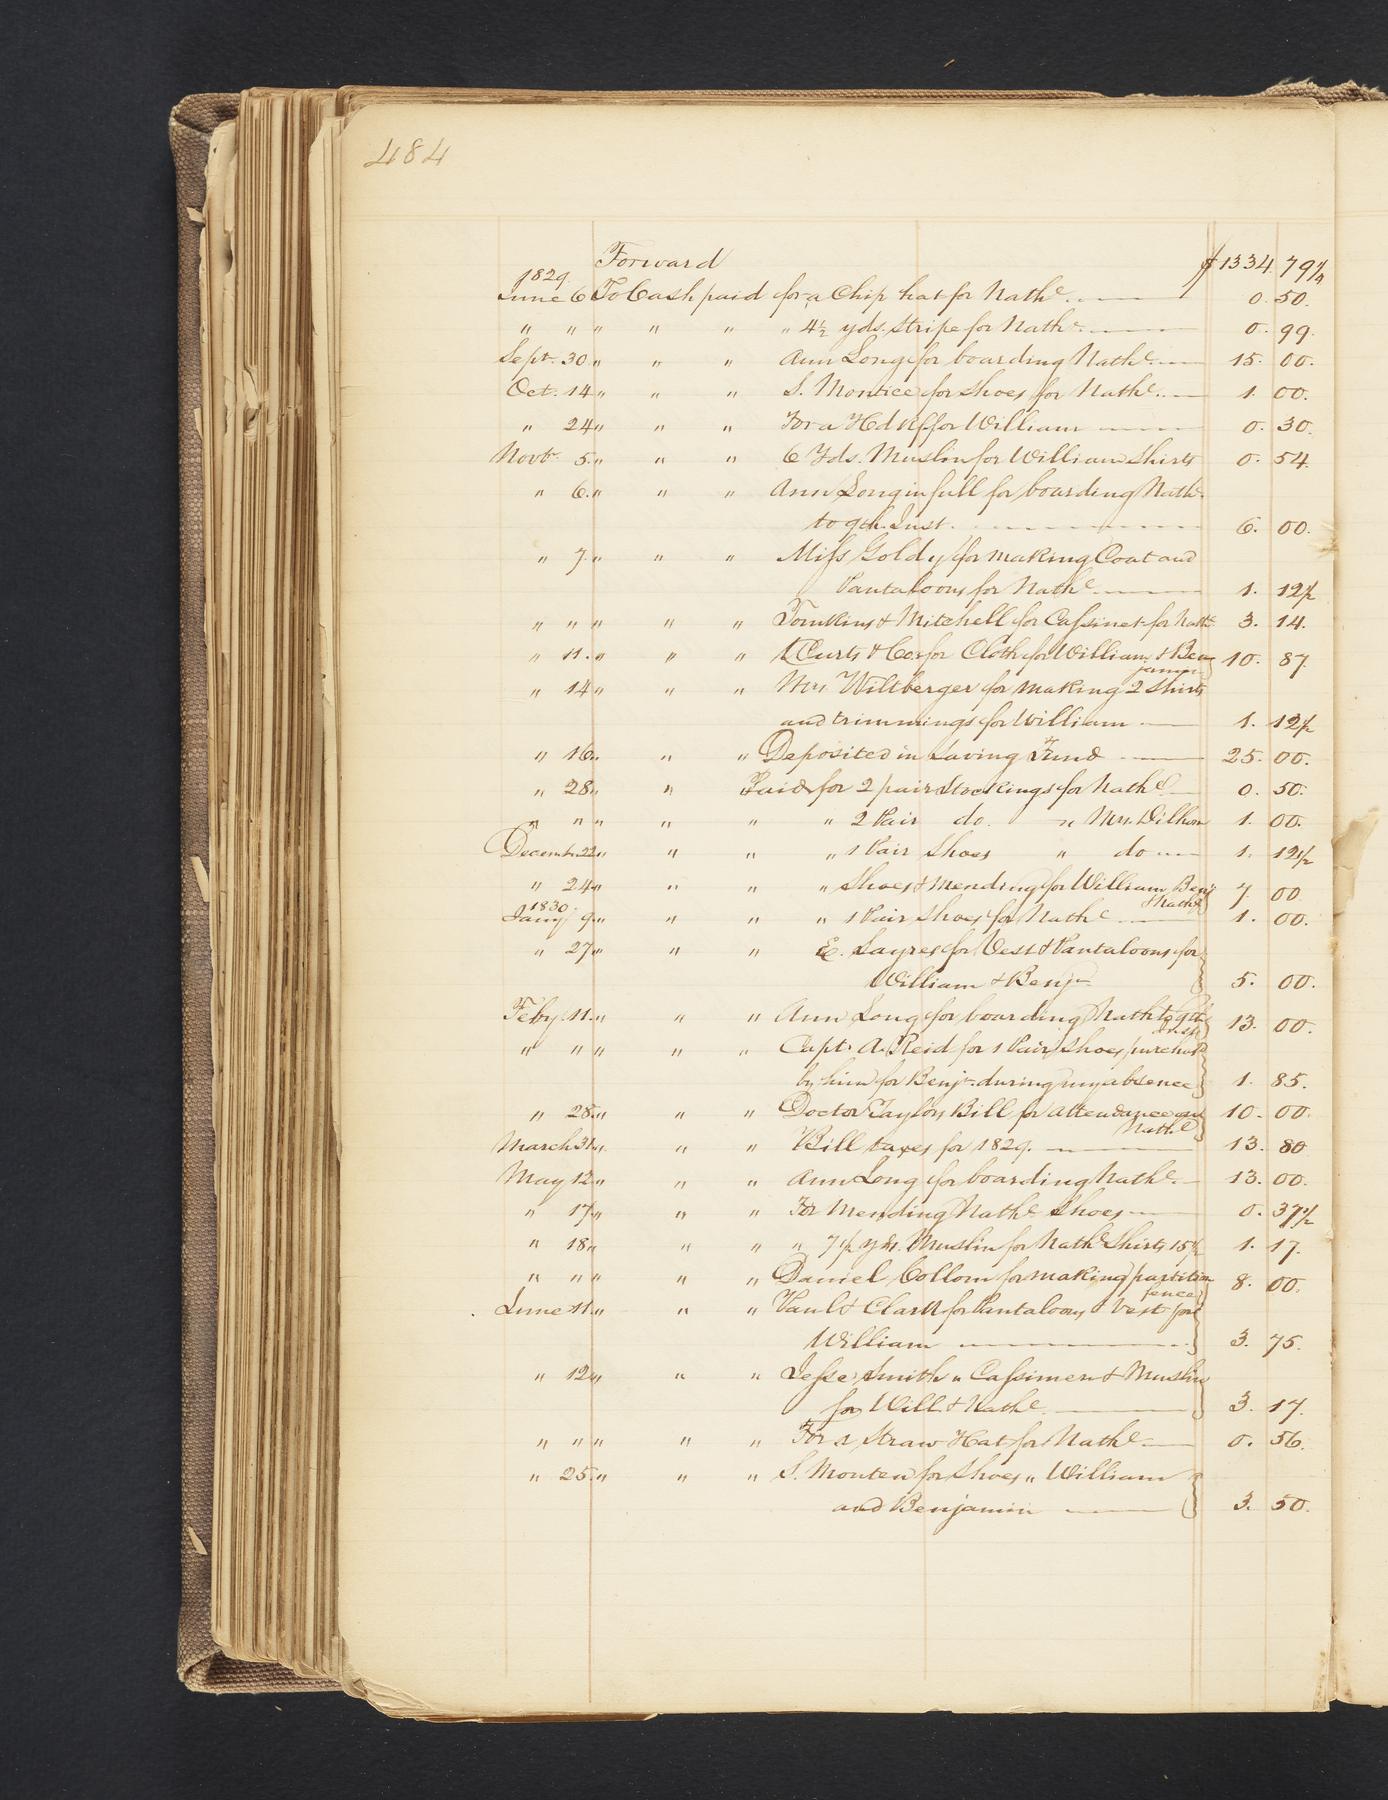 484
Forward $1334. 79 1/4
1829
June 6 To Cash paid for a Chip hat for Nathl. 0. 50.
" " " " " " 4½ yds. Stripe for Nathl. 0. 99.
Sept. 30 " " " Ann Long for boarding Nathl. 15. 00.
Oct. 14 " " " S. for Shoes for Nathl. 1. 00.
" 24 " " " For a Hdkff for William 0. 30.
Novbr 5. " " " 6 Yds. Muslin for William Shirts 0. 54.
" 6. " " " Ann Long in full for boarding Nathl.
to 9th. Inst. 6. 00.
" 7. " " " Miss Goldy for making Coat and
Pantaloons for Nathl. 1. 12½
" " " " " Tomkins & Mitchell for Cassinet for Nathl. 3. 14.
" 11. " " " Curts & Co. for Cloth for William & Ben
jamin 10. 87.
" 14 " " " Mrs. Wiltberger for making 2 Shirts
and trimmings for William 1. 12½
" 16 " " " Deposited in Saving Fund 25. 00.
" 28 " " Paid for 2 pair Stockings for Nathl. 0. 50.
" " " " " 2 Pair do. " Mrs. 1. 00.
Decembr 22 " " " " 1 Pair Shoes " do 1. 12½
" 24 " " " " Shoes & Mending for William, Benj
& Nathl 7. 00
1830.
Jany 9. " " " " 1 Pair Shoes for Nathl. 1. 00.
" 27 " " " E. Sayres for Vest & Pantaloons for
William & Benjn 5. 00.
Feby 11. " " " Ann Long for boarding Nathl to 9th
inst 13. 00.
" " " " " Capt. A. Reid for 1 Pair Shoes purchasd
by him for Benjn. during my absence 1. 85.
" 28. " " " Doctor Taylors Bill for attendance on
Nathl. 10. 00.
March 31. " " " Bill taxes for 1829. 13. 80
May 12 " " " Ann Long for boarding Nathl. 13. 00.
" 17 " " " For Mending Nathl. Shoes 0. 37½
" 18 " " " " 7½ yds. Muslin for Nathl. Shirts 15½ 1. 17.
" " " " " Daniel Collom for making partition
fence 8. 00.
June 11. " " " Paul & Clark for Pantaloons & Vest for
William 3. 75.
" 12 " " " Jesse Smith " Cassimere & Muslin
for Will. & Nathl. 3. 17.
" " " " " For a Straw Hat for Nathl. 0. 56.
" 25. " " " S. for Shoes " William
and Benjamin 3. 50.